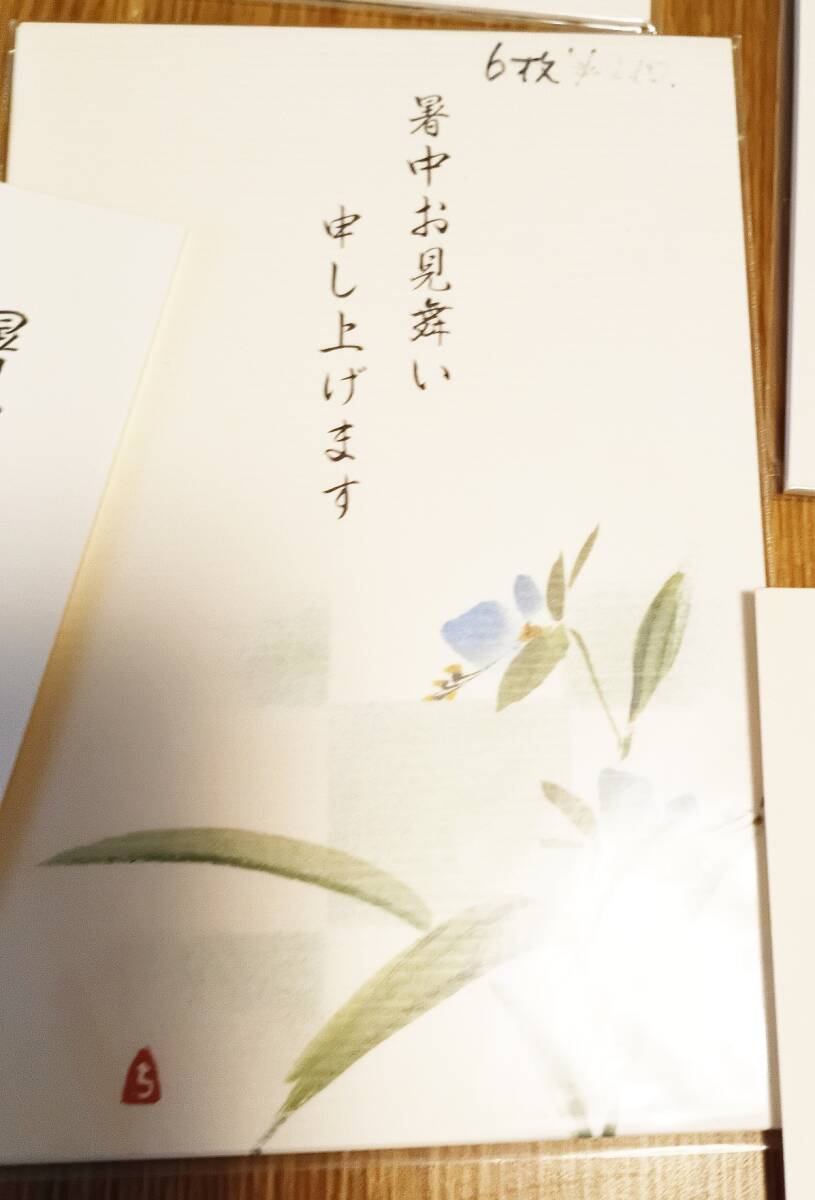 6枚
暑中お見舞い
申し上げます
ち